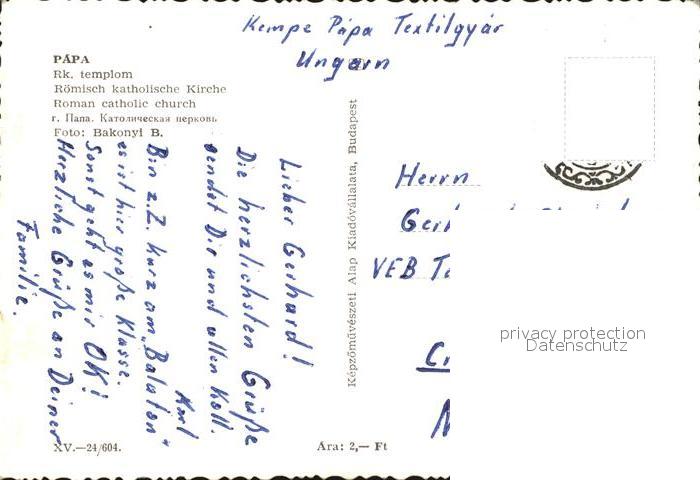 Kempe Pápa Textilgyár
Ungarn
PÁPA
Rk. templom
Römisch katholische Kirche
Roman catholic church
г. Папа. Католическая церковь
Foto: Bakonyi B.
Lieber Gerhard!
Die herzlichsten Grüße
sendet Dir und allen Koll.
Karl
Bin z.Z. kurz am "Balaton"
es ist hier große Klasse.
Sonst geht es mir OK!
Herzliche Grüße an Deiner
Familie.
Képzőművészeti Alap Kiadóvállalata, Budapest
Herrn
VEB
XV.—24/604.
Ára: 2,— Ft
privacy protection
Datenschutz